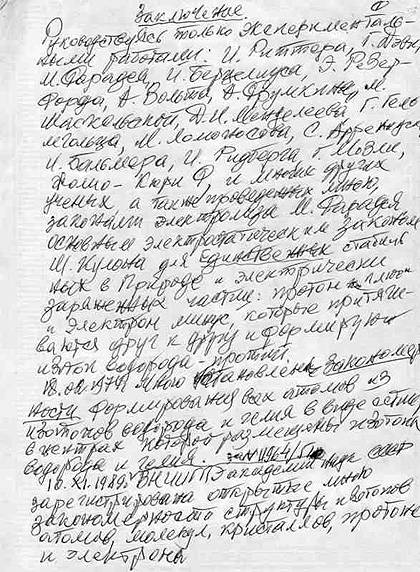 Заключение.
Руководствуясь только эксперименталь-
ными работами: И. Риттера, Г. Дэви
М. Фарадея, И. Берцелиуса, Э. Резер-
форда, А. Вольта, А. Фрумкина, М.
Д. И. Менделеева, Г. Гель-
мгольца, М. Ломоносова, С. Аррениуса
И. Бальмера, И. Ридберга, Г. Мозли,
Жолио-Кюри Ф, и многих других
ученых а также проведенных мною,
законами электролиза М. Фарадея
основным электростатическим законом
Ш. Кулона для Единственных стабиль
ных в Природе и электрически
заряженных частиц: протон плюс
и Электрон минус, которые притяги-
ваются друг к другу и формируют
изотоп водорода - протий.
мною установлена закономер
ность формирования всех атомов из
изотопов водорода и гелия в виде
в центрах которой размещены изотопы
водорода и гелия.
10. XI. 1989г. ВНТИЦ Академии наук СССР
зарегистрировала открытые мною
закономерности структуры изотопов
атомов, молекул, кристаллов, протона
и электрона